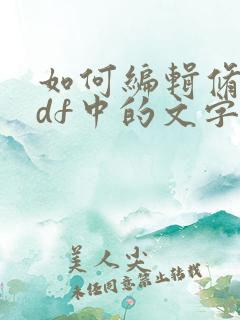 如何编辑修
df中的文字
美人尖
未经同意禁止转载